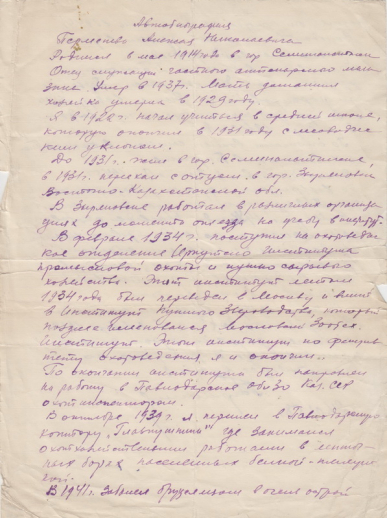 Автобиография
Алексея
Родился в мае 1914 года в гор Семипалатинске
Отец служащий частного
Умер в 1937г. Мать домашняя
хозяйка умерла в 1929 году.
Я в 1926г. начал учиться в средней школе,
которую окончил в 1931 году с
До 1931г. жил в гор. Семипалатинске,
в 1931г. переехал с отцом в гор. Зыряновск
Восточно-Казахстанской обл.
В Зыряновске работал в различных организа
циях до момента отъезда на учебу в
В феврале 1934г. поступил на охотоведче
ское отделение Иркутского института
промысловой охоты и пушно сырьевого
хозяйства. Этот институт летом
1934 года был переведен в Москву и влит
в Институт Пушного Звероводства, который
позднее именовался Московский Зоовет.
Институт. Этот институт по факуль
тету охотоведения я и окончил.
По окончании института был направлен
на работу в Павлодарское облЗО Каз. ССР
охотинспектором.
В октябре 1939г. я перешел в Павлодарскую
контору "Главпушнина" где занимался
охотхозяйственными работами в ленточ-
ных борах населенных белкой-телеут
кой.
В 1941г. Заболел бруцеллезом в очень острой